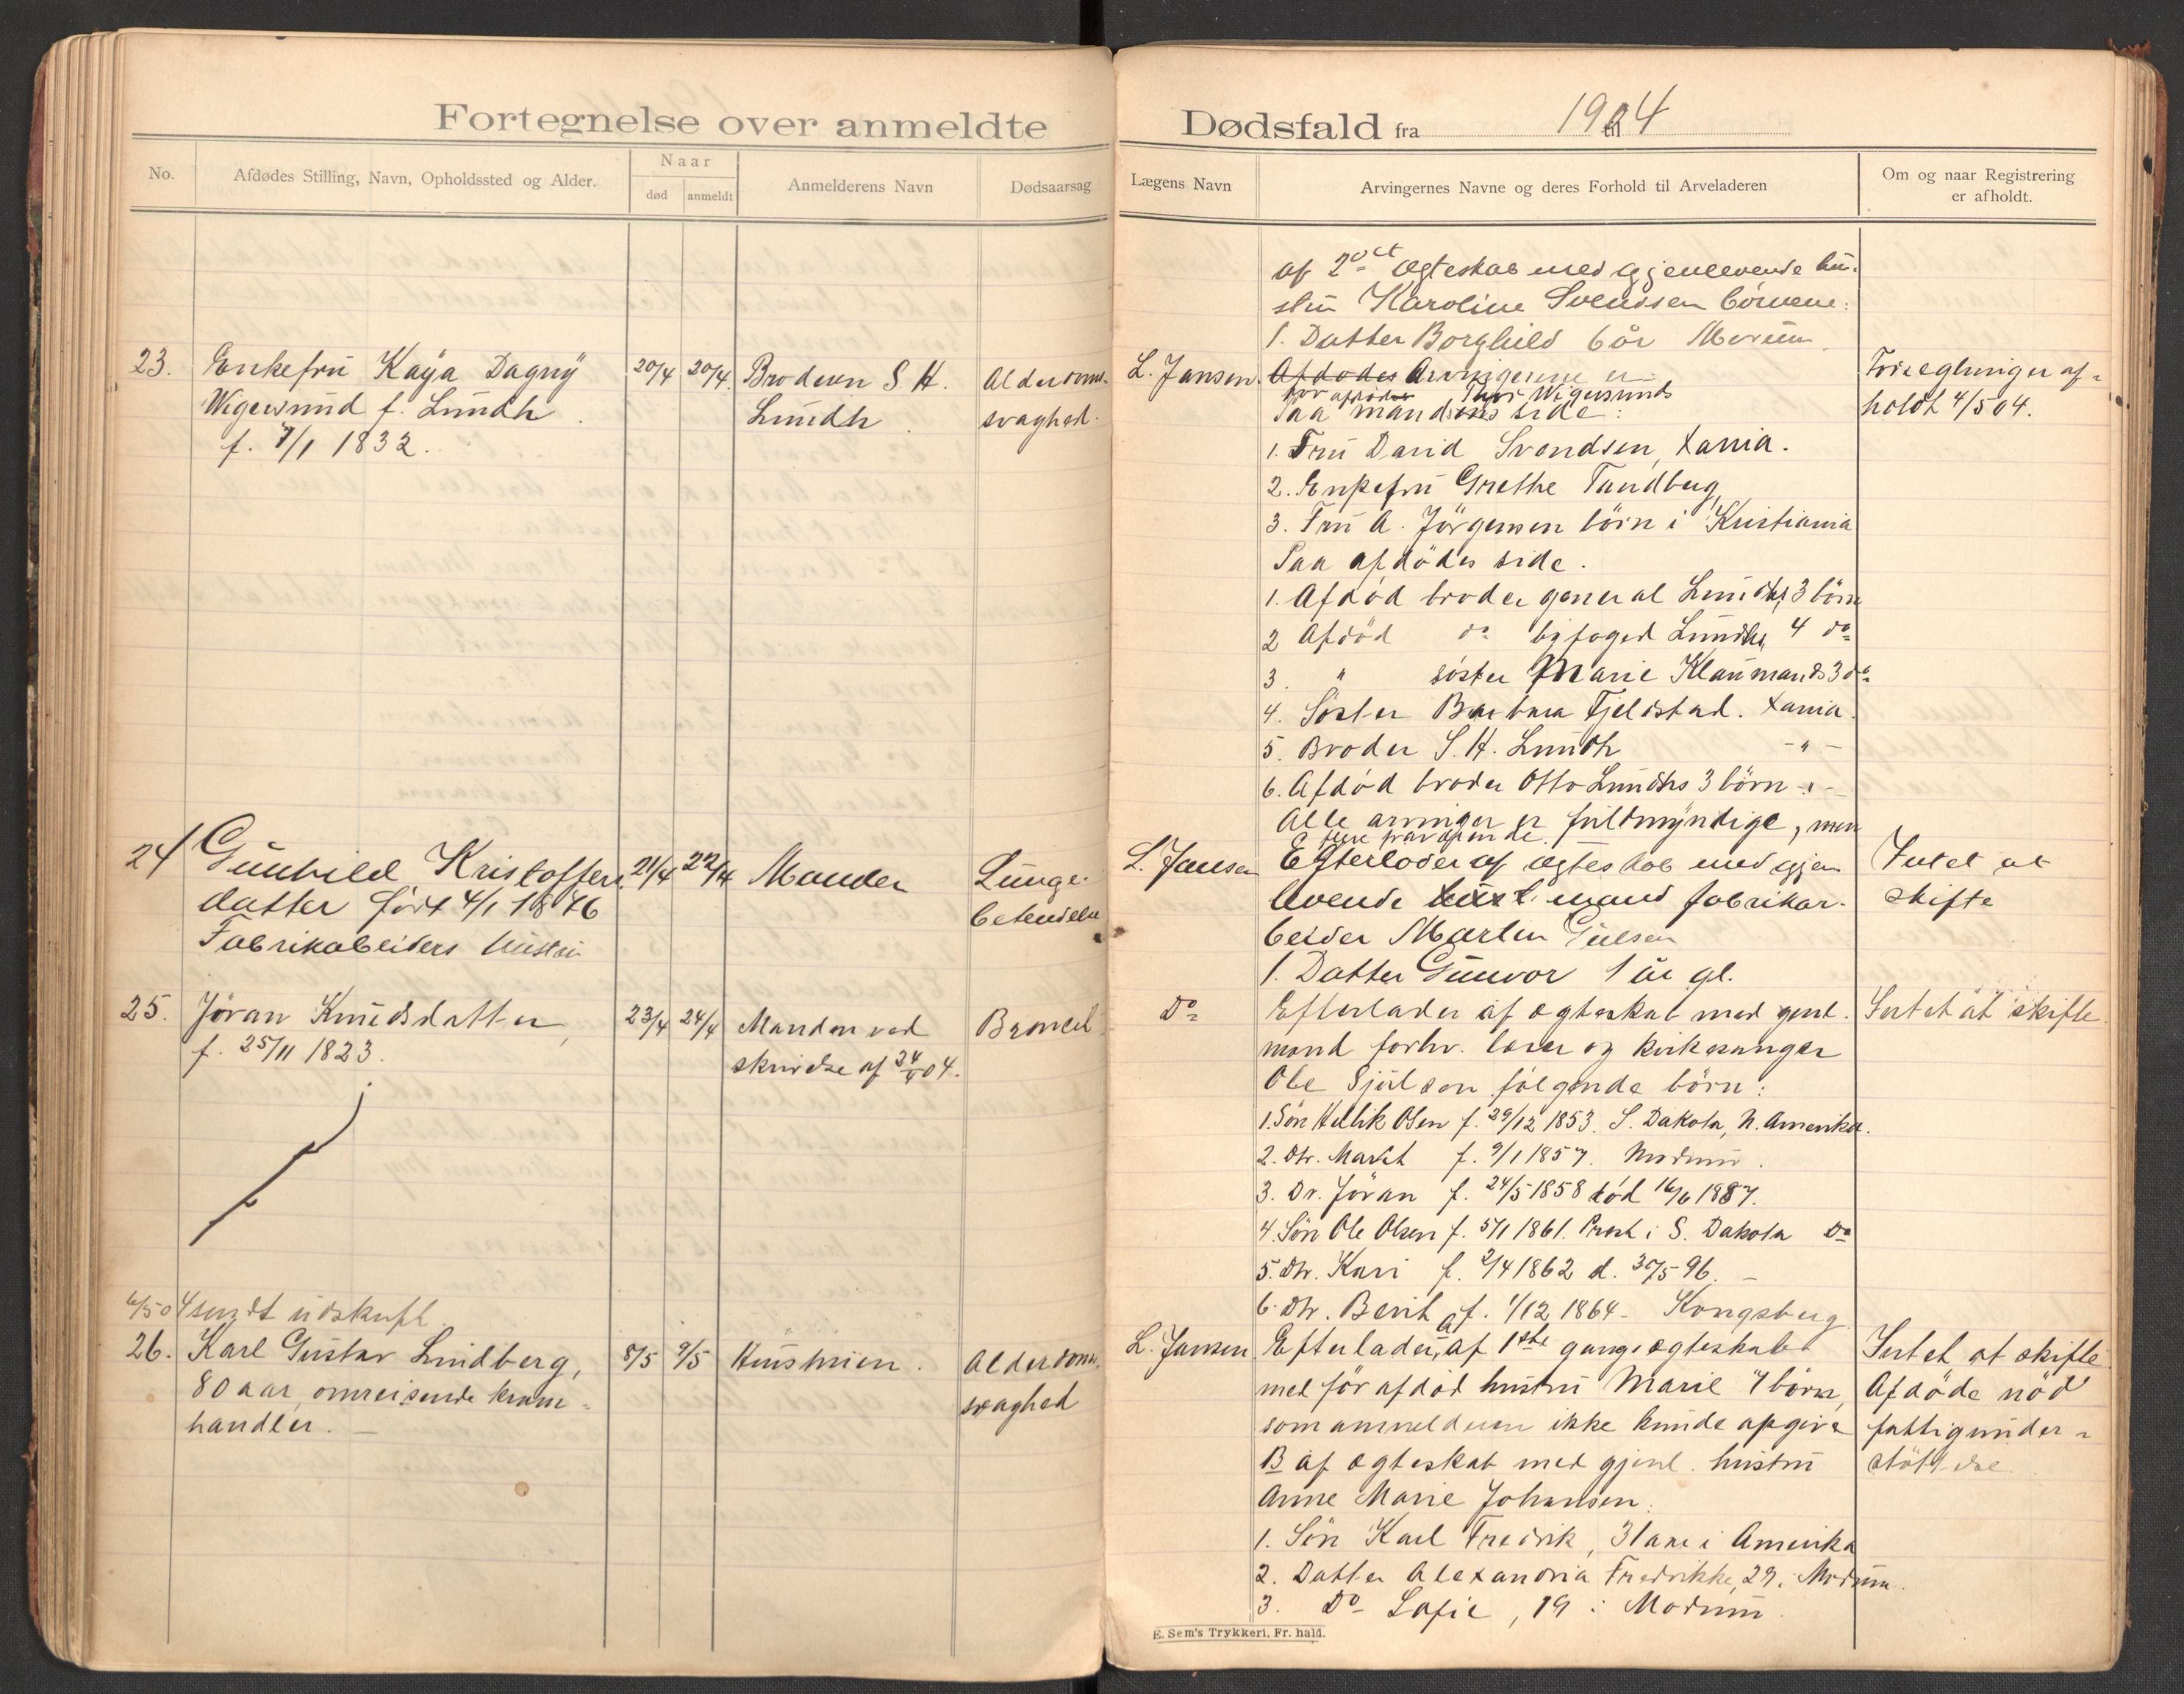 Fortegnelse over anmeldte
No.
Afdødes Stilling, Navn, Opholdssted og Alder.
Naar
død
anmeldt
Anmelderens Navn
Dødsaarsag
23. Enkefru Kaya Dagny 20/4 20/4. Broderen S. H. Alderdoms-
Wigersund f. Lundh Lundh svaghed.
f. 7/1 1832.
24 Gunhild Kristoffers 21/4 22/4 Manden Lunge-
datter født 4/1 1876 betendelse
Fabrikabeiders hustru
25. Jöran Knudsdatter, 23/4 24/4 Manden ved Broncit
f. 25/11 1823. skrivelse af 24/4 04.
6/5 04 sendt udskrift
26. Karl Gustav Lindberg, 8/5 9/5 Hustruen. Alderdoms-
80 aar, omreisende kram- svaghed
handler.
Dødsfald fra 1904
til
Lægens Navn
Arvingernes Navne og deres Forhold til Arveladeren
Om og naar Registrering
er afholdt.
af 2det ægteskab med gjenlevende hu-
stru Karoline Svendsen börnene:
1. Datter Borghild 6 år Modum.
L. Jansen. Afdødes Arvingerne er Forseglinger af-
for afdöde Thor Wigersunds
Paa mandens side: holdt 4/5 04.
1. Fru David Svendsen, Xania.
2. Enkefru Grethe Tandberg,
3. Fru A. Jörgensen börn i Kristiania
Paa afdödes side.
1. Afdød broder general Lundhs, 3 börn
2 Afdöd do byfoged Lundhs, 4 do
3. " söster Marie Klaumands 3 do
4. Söster Barbara Fjeldstad. Xania.
5. Broder S. H. Lundh - " -
6. Afdöd broder Otto Lundhs 3 börn - " -
Alle arvinger er fuldmyndige, men
flere fraværende.
L. Jansen Efterlader af ægteskab med gjen Intet at
levende hust. mand fabrikar- skifte
beider Martin
1. Datter Gunvor 1 år gl.
Do Efterlader af ægteskab med genl. Intet at skifte
mand forhv. lærer og kirkesanger
Ole Sjulsen følgende börn:
1. Sön Hellik Olsen f. 29/12 1853. S. Dakota, N. Amerika.
2. Dtr. Marit f. 9/1 1857. Modum.
3. Dr. Jöran f. 24/5 1858 död 16/6 1887.
4. Sön Ole Olsen f. 5/1 1861. Prest i S. Dakota Do
5. Dtr. Kari f. 2/4 1862 d. 30/5 96. -
6. Dtr. Berit f. 1/12 1864 - Kongsberg
L. Jansen Efterlader, A af 1ste gangs ægteskab Intet at skifte
med för afdöd hustru Marie 4 börn, Afdöde nöd
som anmelderen ikke kunde opgive fattigunder-
B af ægteskab med gjenl. hustru stöttelse
Anne Marie Johansen.
1. Sön Karl Fredrik, 31 aar i Amerika
2. Datter Alexandria Fredrikke, 29, Modum.
3. Do Sofie, 19 i Modum
E. Sem's Trykkeri, Fr. hald.